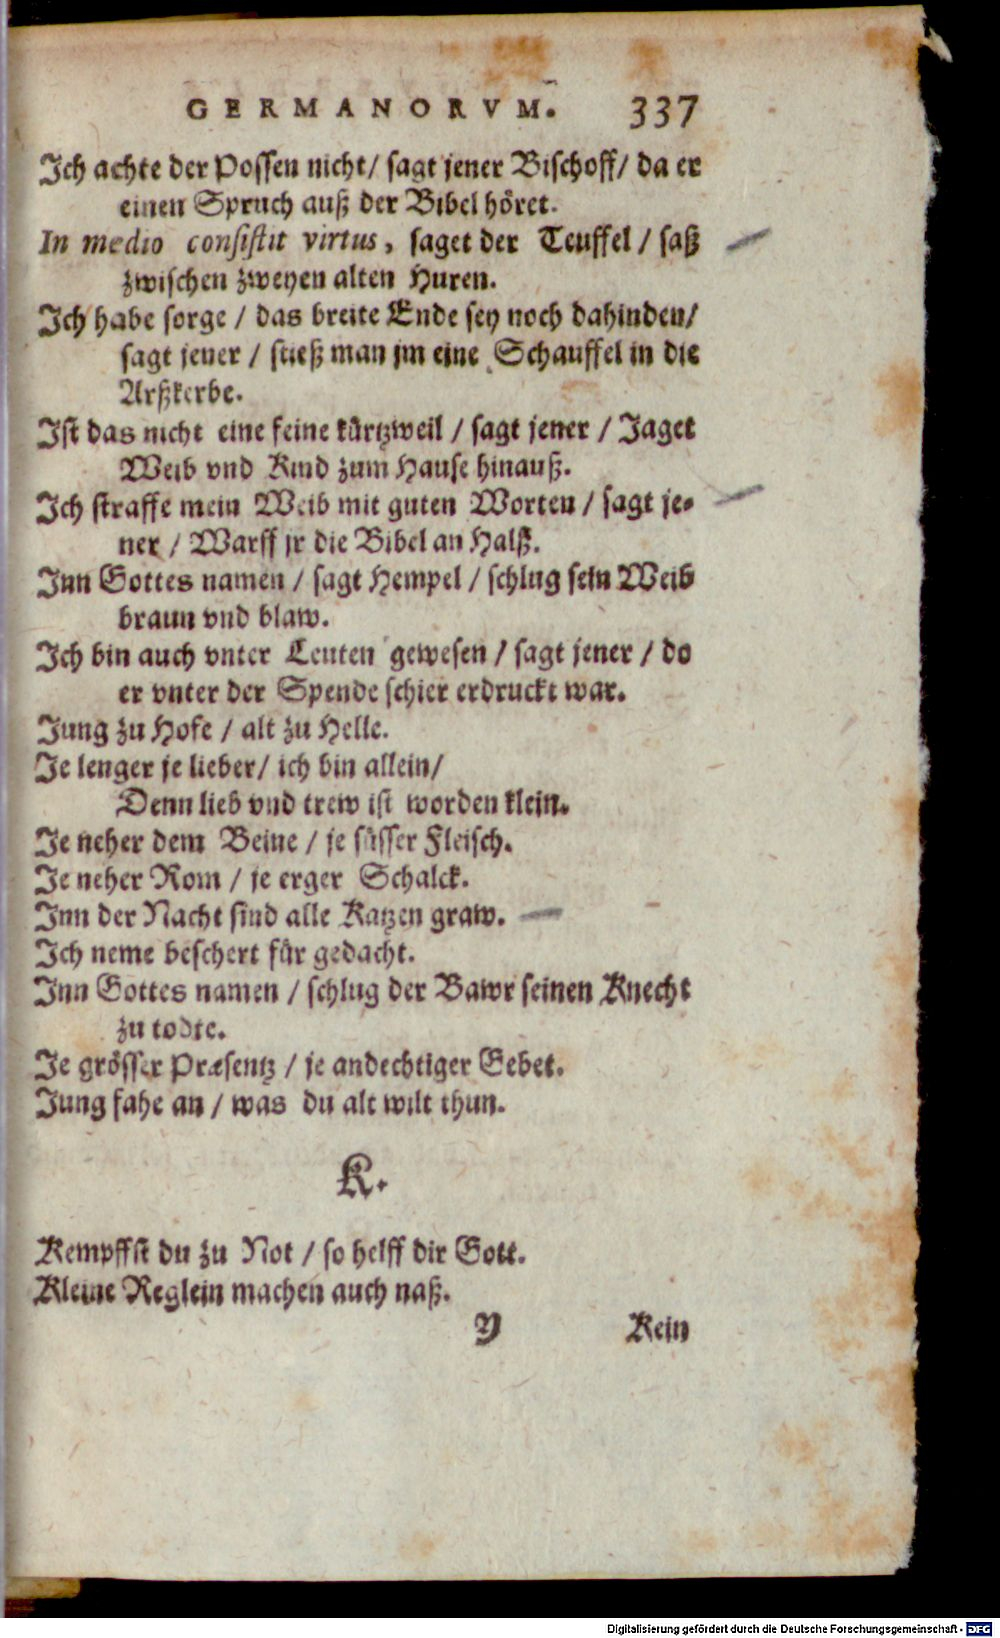 GERMANORVM. 337
Ich achte der Possen nicht/ sagt jener Bischoff/ da er
einen Spruch auß der Bibel höret.
In medio consistit virtus, saget der Teuffel / saß
zwischen zweyen alten Huren.
Ich habe sorge / das breite Ende sey noch dahinden/
sagt jener / stieß man jm eine Schauffel in die
Arßkerbe.
Ist das nicht eine feine kürtzweil / sagt jener / Jaget
Weib vnd Kind zum Hause hinauß.
Ich straffe mein Weib mit guten Worten / sagt je-
ner / Warff jr die Bibel an Halß.
Inn Gottes namen / sagt Hempel / schlug sein Weib
braun vnd blaw.
Ich bin auch vnter Leuten gewesen / sagt jener / do
er vnter der Spende schier erdruckt war.
Jung zu Hofe / alt zu Helle.
Je lenger je lieber/ ich bin allein/
Denn lieb vnd trew ist worden klein.
Je neher dem Beine / je süsser Fleisch.
Je neher Rom / je erger Schalck.
Inn der Nacht sind alle Katzen graw.
Ich neme beschert für gedacht.
Inn Gottes namen / schlug der Bawr seinen Knecht
zu todte.
Je grösser Præsentz / je andechtiger Gebet.
Jung fahe an / was du alt wilt thun.
K.
Kempffst du zu Not / so helff dir Gott.
Kleine Reglein machen auch naß.
Y Kein
Digitalisierung gefördert durch die Deutsche Forschungsgemeinschaft - DFG